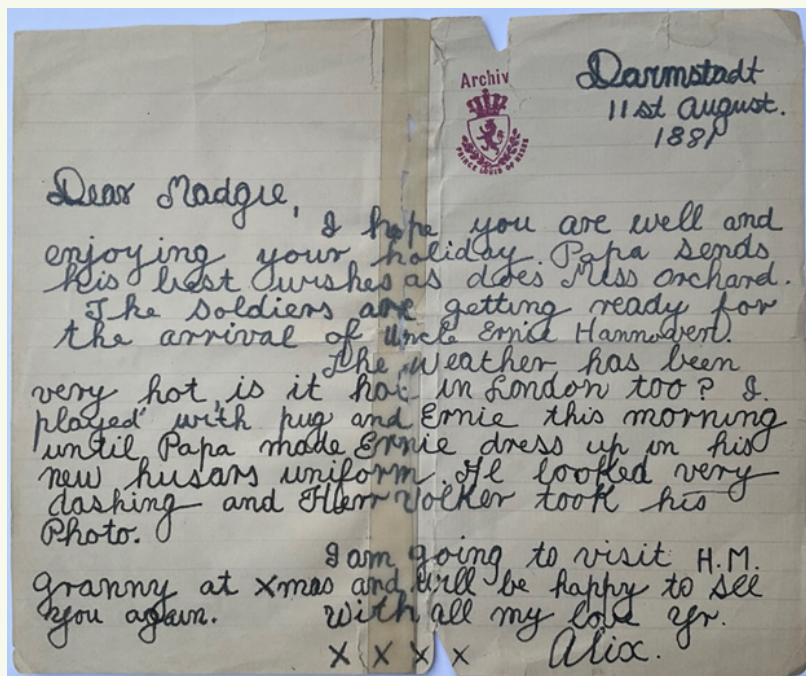 Archiv
PRINCE LOUIS OF HESSE
Darmstadt
11st August.
1881
Dear Madgie,
I hope you are well and
enjoying your holiday. Papa sends
his best wishes as does Miss Orchard.
The soldiers are getting ready for
the arrival of Uncle Ernie Hannover.
The weather has been
very hot, is it hot in London too? I.
played with pug and Ernie this morning
until Papa made Ernie dress up in his
new husars uniform. He looked very
dashing and Herr Volker took his
Photo.
I am going to visit H.M.
granny at Xmas and will be happy to see
you again. With all my love yr.
X X X X Alix.